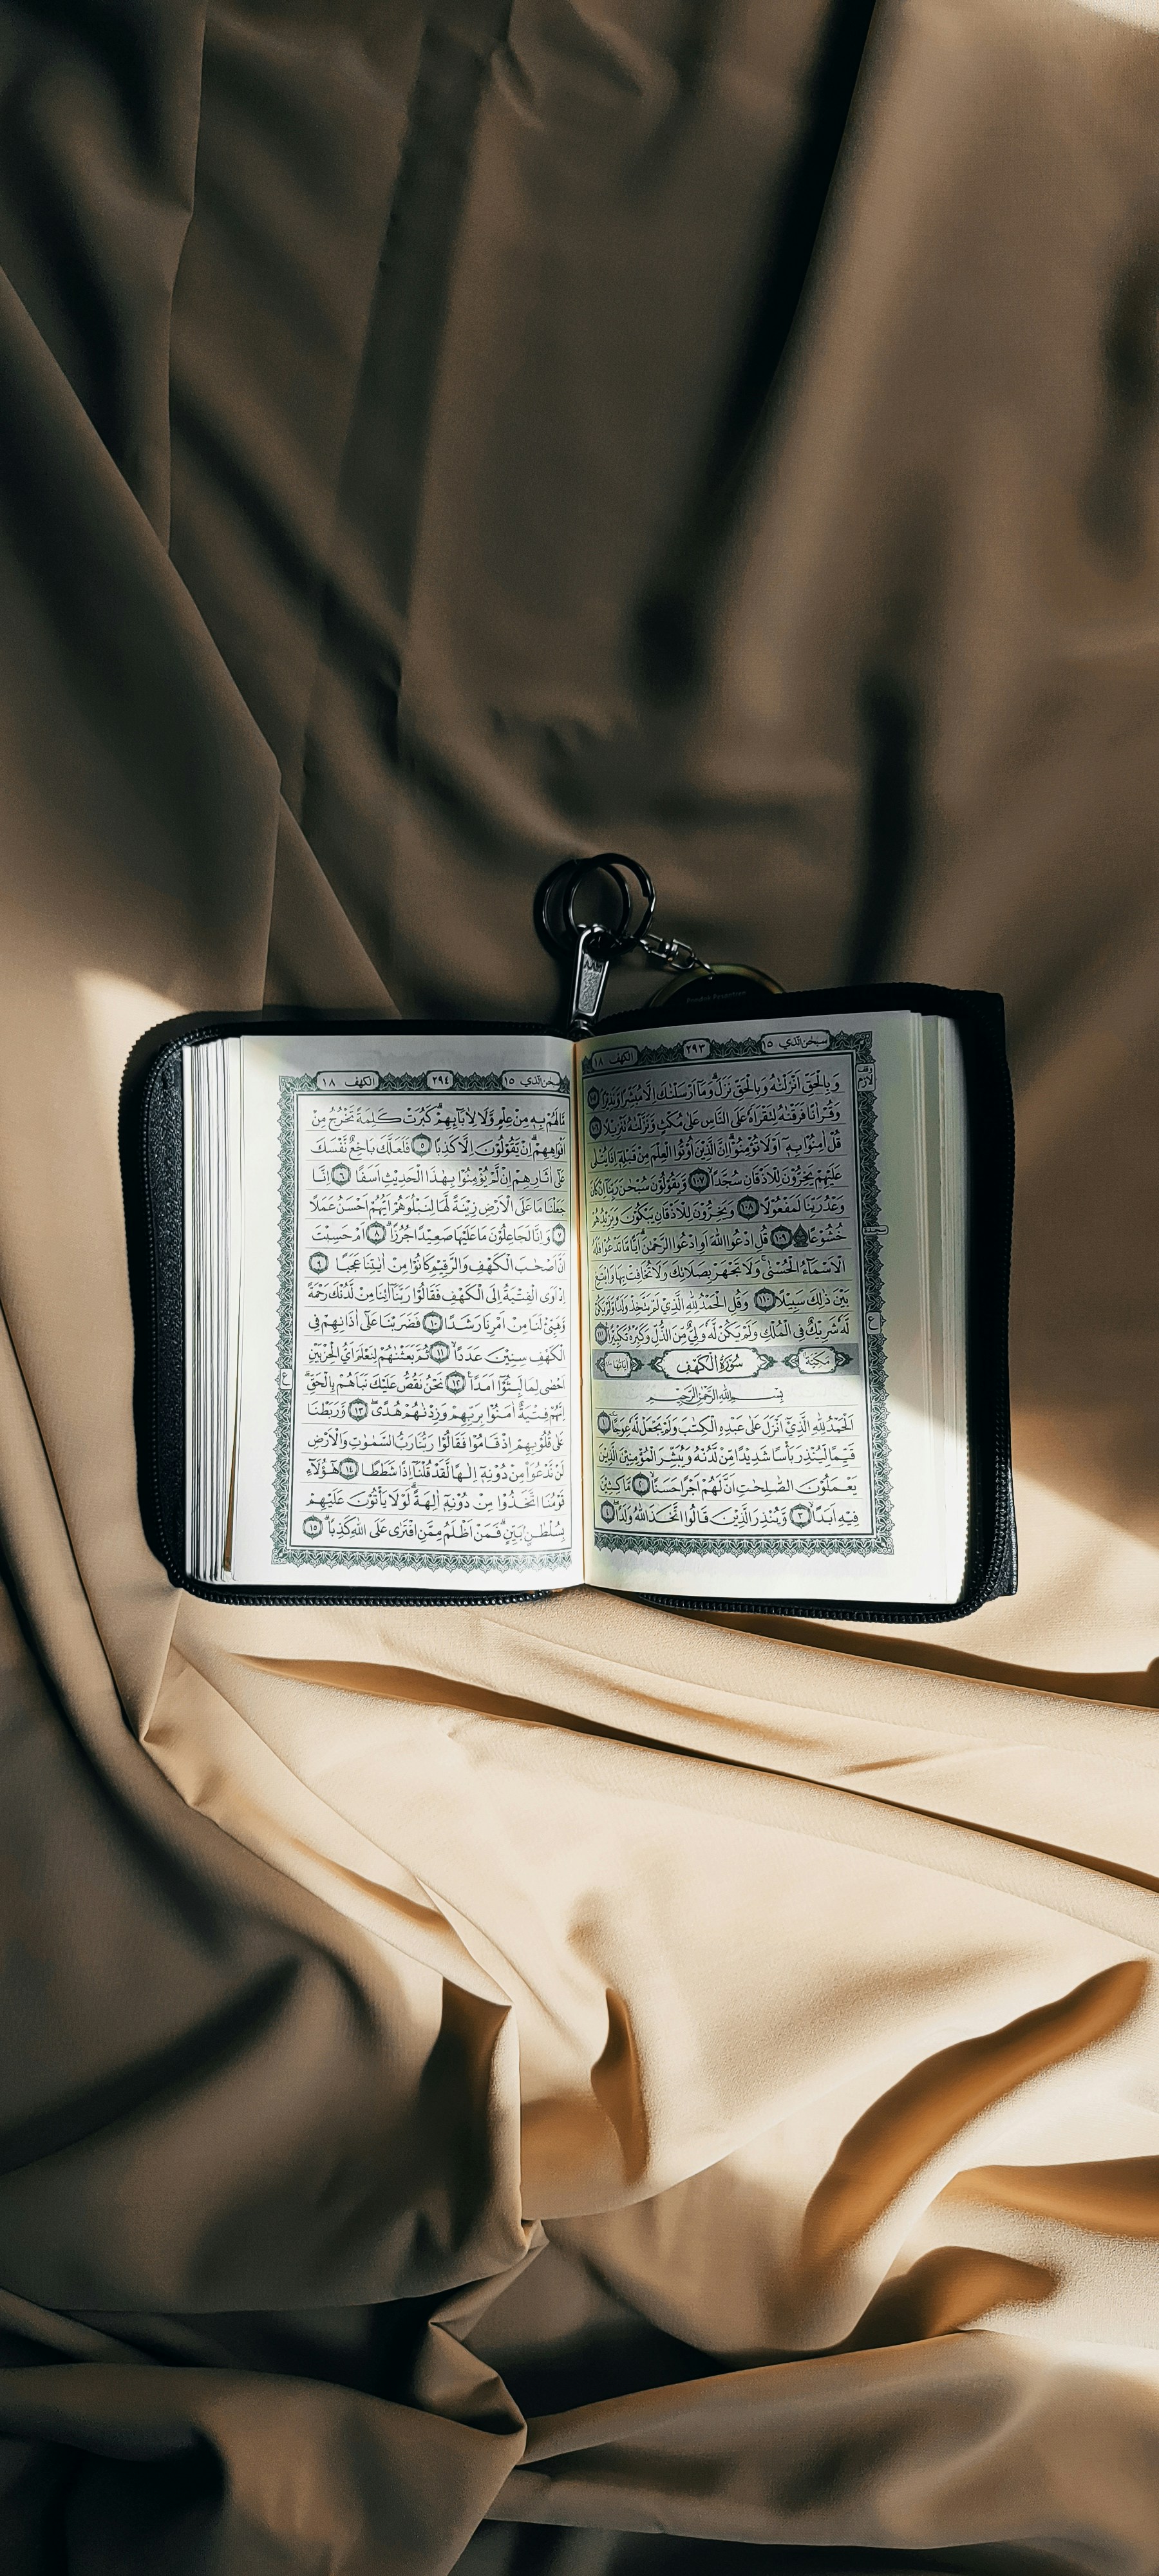 الكهف ١٨
٢٩٣
سبحن الذي ١٥
وقف لازم
وَبِالْحَقِّ اَنْزَلْنٰهُ وَبِالْحَقِّ نَزَلَۗ وَمَآ اَرْسَلْنٰكَ اِلَّا مُبَشِّرًا وَّنَذِيْرًاۘ ١٠٥
وَقُرْاٰنًا فَرَقْنٰهُ لِتَقْرَاَهٗ عَلَى النَّاسِ عَلٰى مُكْثٍ وَّنَزَّلْنٰهُ تَنْزِيْلًا ١٠٦
قُلْ اٰمِنُوْا بِهٖٓ اَوْ لَا تُؤْمِنُوْاۗ اِنَّ الَّذِيْنَ اُوْتُوا الْعِلْمَ مِنْ قَبْلِهٖٓ اِذَا يُتْلٰى
عَلَيْهِمْ يَخِرُّوْنَ لِلْاَذْقَانِ سُجَّدًاۙ ١٠٧ وَّيَقُوْلُوْنَ سُبْحٰنَ رَبِّنَآ اِنْ كَانَ
وَعْدُ رَبِّنَا لَمَفْعُوْلًا ١٠٨ وَيَخِرُّوْنَ لِلْاَذْقَانِ يَبْكُوْنَ وَيَزِيْدُهُمْ
خُشُوْعًا ۩ ١٠٩ قُلِ ادْعُوا اللّٰهَ اَوِ ادْعُوا الرَّحْمٰنَۗ اَيًّا مَّا تَدْعُوْا فَلَهُ
سجدة
الْاَسْمَاۤءُ الْحُسْنٰىۚ وَلَا تَجْهَرْ بِصَلَاتِكَ وَلَا تُخَافِتْ بِهَا وَابْتَغِ
بَيْنَ ذٰلِكَ سَبِيْلًا ١١٠ وَقُلِ الْحَمْدُ لِلّٰهِ الَّذِيْ لَمْ يَتَّخِذْ وَلَدًا وَّلَمْ يَكُنْ
لَّهٗ شَرِيْكٌ فِى الْمُلْكِ وَلَمْ يَكُنْ لَّهٗ وَلِيٌّ مِّنَ الذُّلِّ وَكَبِّرْهُ تَكْبِيْرًا ١١١
ع
مكية
سُوْرَةُ الْكَهْفِ
اياتها ١١٠
بِسْمِ اللّٰهِ الرَّحْمٰنِ الرَّحِيْمِ
اَلْحَمْدُ لِلّٰهِ الَّذِيْٓ اَنْزَلَ عَلٰى عَبْدِهِ الْكِتٰبَ وَلَمْ يَجْعَلْ لَّهٗ عِوَجًا ١
قَيِّمًا لِّيُنْذِرَ بَأْسًا شَدِيْدًا مِّنْ لَّدُنْهُ وَيُبَشِّرَ الْمُؤْمِنِيْنَ الَّذِيْنَ
يَعْمَلُوْنَ الصّٰلِحٰتِ اَنَّ لَهُمْ اَجْرًا حَسَنًاۙ ٢ مَّاكِثِيْنَ
فِيْهِ اَبَدًاۙ ٣ وَّيُنْذِرَ الَّذِيْنَ قَالُوا اتَّخَذَ اللّٰهُ وَلَدًا ٤
الكهف ١٨
٢٩٤
سبحن الذي ١٥
مَا لَهُمْ بِهٖ مِنْ عِلْمٍ وَّلَا لِاٰبَاۤىِٕهِمْۗ كَبُرَتْ كَلِمَةً تَخْرُجُ مِنْ
اَفْوَاهِهِمْۗ اِنْ يَّقُوْلُوْنَ اِلَّا كَذِبًا ٥ فَلَعَلَّكَ بَاخِعٌ نَّفْسَكَ
عَلٰٓى اٰثَارِهِمْ اِنْ لَّمْ يُؤْمِنُوْا بِهٰذَا الْحَدِيْثِ اَسَفًا ٦ اِنَّا
جَعَلْنَا مَا عَلَى الْاَرْضِ زِيْنَةً لَّهَا لِنَبْلُوَهُمْ اَيُّهُمْ اَحْسَنُ عَمَلًا
٧ وَاِنَّا لَجَاعِلُوْنَ مَا عَلَيْهَا صَعِيْدًا جُرُزًاۗ ٨ اَمْ حَسِبْتَ
اَنَّ اَصْحٰبَ الْكَهْفِ وَالرَّقِيْمِ كَانُوْا مِنْ اٰيٰتِنَا عَجَبًا ٩
اِذْ اَوَى الْفِتْيَةُ اِلَى الْكَهْفِ فَقَالُوْا رَبَّنَآ اٰتِنَا مِنْ لَّدُنْكَ رَحْمَةً
وَّهَيِّئْ لَنَا مِنْ اَمْرِنَا رَشَدًا ١٠ فَضَرَبْنَا عَلٰٓى اٰذَانِهِمْ فِى
الْكَهْفِ سِنِيْنَ عَدَدًاۙ ١١ ثُمَّ بَعَثْنٰهُمْ لِنَعْلَمَ اَيُّ الْحِزْبَيْنِ
اَحْصٰى لِمَا لَبِثُوْٓا اَمَدًا ١٢ نَحْنُ نَقُصُّ عَلَيْكَ نَبَاَهُمْ بِالْحَقِّۗ
ع
اِنَّهُمْ فِتْيَةٌ اٰمَنُوْا بِرَبِّهِمْ وَزِدْنٰهُمْ هُدًىۖ ١٣ وَّرَبَطْنَا
عَلٰى قُلُوْبِهِمْ اِذْ قَامُوْا فَقَالُوْا رَبُّنَا رَبُّ السَّمٰوٰتِ وَالْاَرْضِ
لَنْ نَّدْعُوَا۟ مِنْ دُوْنِهٖٓ اِلٰهًا لَّقَدْ قُلْنَآ اِذًا شَطَطًا ١٤ هٰٓؤُلَاۤءِ
قَوْمُنَا اتَّخَذُوْا مِنْ دُوْنِهٖٓ اٰلِهَةًۗ لَوْلَا يَأْتُوْنَ عَلَيْهِمْ
بِسُلْطٰنٍۢ بَيِّنٍۗ فَمَنْ اَظْلَمُ مِمَّنِ افْتَرٰى عَلَى اللّٰهِ كَذِبًاۗ ١٥